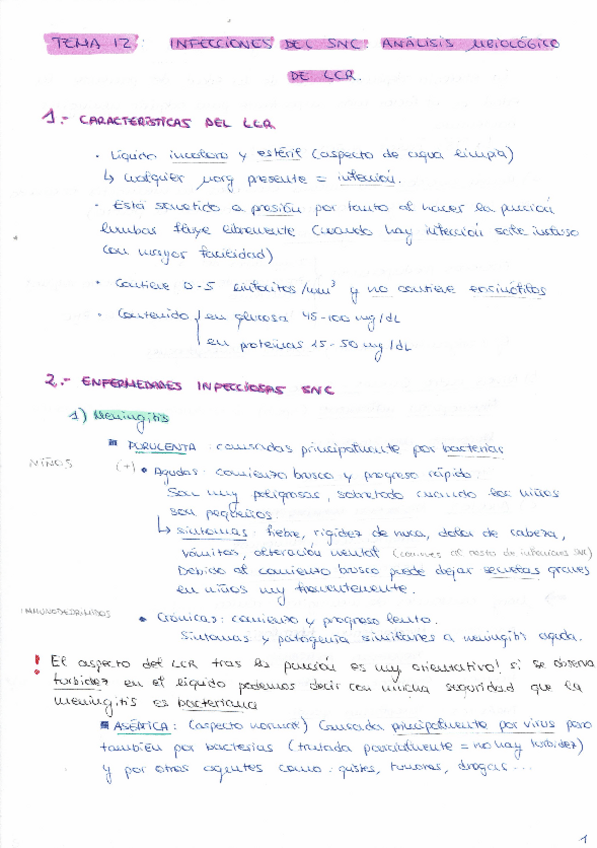 TEMA 12: INFECCIONES DEL SNC: ANÁLISIS μBIOLÓGICO
DE LCR.
1.- CARACTERÍSTICAS DEL LCR
· Líquido incoloro y estéril (aspecto de agua limpia)
↳ cualquier μorg presente = infección.
· Está sometido a presión por tanto al hacer la punción
lumbar fluye libremente (cuando hay infección sale incluso
con mayor facilidad)
· Contiene 0-5 linfocitos/mm³ y no contiene eosinófilos
· Contenido en glucosa 45-100 mg/dL
en proteínas 15-50 mg/dL
2.- ENFERMEDADES INFECCIOSAS SNC
1) Meningitis
■ PURULENTA: causadas principalmente por bacterias
NIÑOS (+) • Agudas: comienzo brusco y progreso rápido.
Son muy peligrosas, sobretodo cuando los niños
son pequeños.
↳ síntomas: fiebre, rigidez de nuca, dolor de cabeza,
vómitos, alteración mental (comunes al resto de infecciones SNC)
Debido al comienzo brusco puede dejar secuelas graves
en niños muy frecuentemente.
INMUNODEPRIMIDOS • Crónicas: comienzo y progreso lento.
Síntomas y patogenia similares a meningitis aguda.
! El aspecto del LCR tras la punción es muy orientativo! si se observa
turbidez en el líquido podemos decir con mucha seguridad que la
meningitis es bacteriana
■ ASÉPTICA: (aspecto normal) Causada principalmente por virus pero
también por bacterias (tratada parcialmente = no hay turbidez)
y por otros agentes como: quistes, tumores, drogas...
1